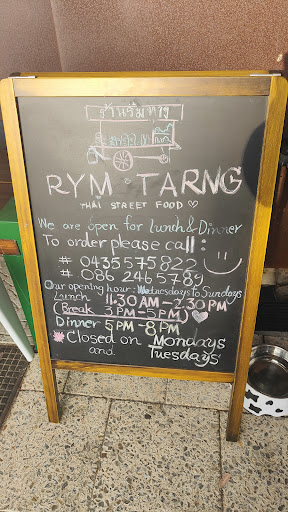 ร้านริมทาง
RYM·TARNG
THAI STREET FOOD
We are open for lunch & Dinner
To order please call :
# 0435575822
# 086 2465789
Our opening hour : Wednesdays to Sundays
Lunch 11.30 AM - 2.30 PM
(Break 3 PM - 5 PM)
Dinner 5 PM - 8 PM
Closed on Mondays
and Tuesdays